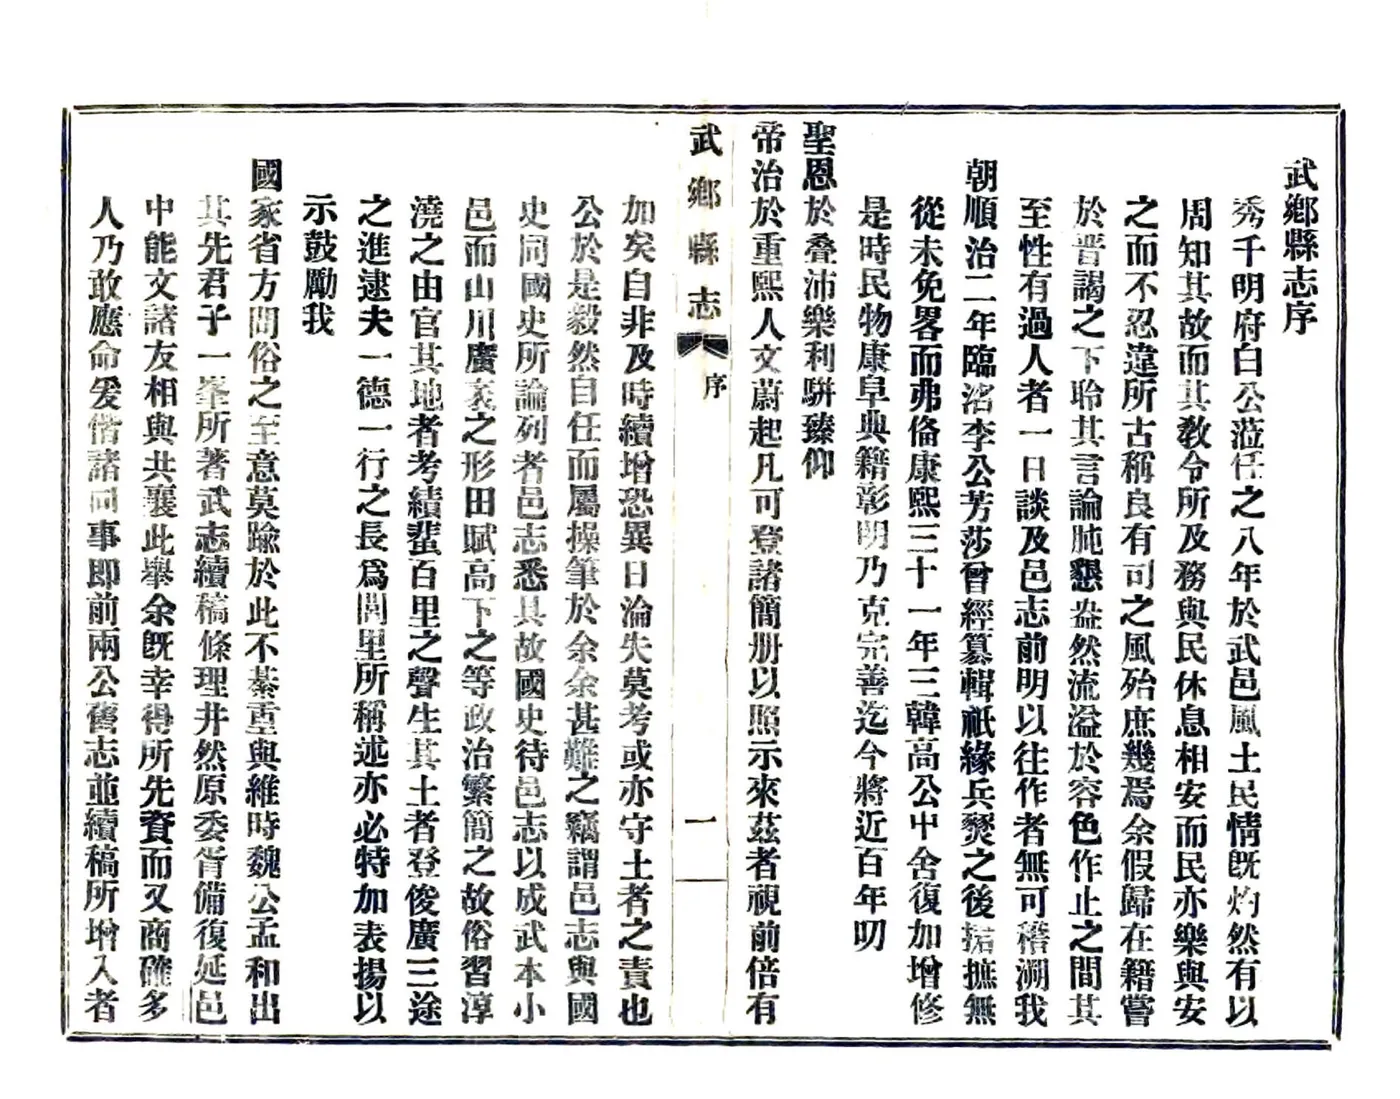 武鄉縣志序
秀千明府白公蒞任之八年於武邑風土民情旣灼然有以
周知其故而其敎令所及務與民休息相安而民亦樂與安
之而不忍違所古稱良有司之風殆庶幾焉余假歸在籍嘗
於晋謁之下聆其言論肫懇盎然流溢於容色作止之間其
至性有過人者一日談及邑志前明以往作者無可稽溯我
朝順治二年臨洺李公芳莎曾經纂輯祇緣兵燹之後掂摭無
從未免畧而弗俻康熙三十一年三韓高公中舍復加增修
是時民物康阜典籍彰明乃克完善迄今將近百年叨
聖恩於叠沛樂利駢臻仰
帝治於重熙人文蔚起凡可登諸簡册以照示來茲者視前倍有
武鄉縣志 序 一
加矣自非及時續增恐異日淪失莫考或亦守土者之責也
公於是毅然自任而屬操筆於余余甚難之竊謂邑志與國
史同國史所論列者邑志悉具故國史待邑志以成武本小
邑而山川廣袤之形田賦高下之等政治繁簡之故俗習淳
澆之由官其地者考績蜚百里之聲生其土者登俊廣三途
之進逮夫一德一行之長爲閭里所稱述亦必特加表揚以
示鼓勵我
國家省方問俗之至意莫踰於此不綦重與維時魏公孟和出
其先君子一峯所著武志續稿條理井然原委胥備復延邑
中能文諸友相與共襄此舉余旣幸得所先資而又商確多
人乃敢應命爰偕諸同事即前兩公舊志並續稿所增入者